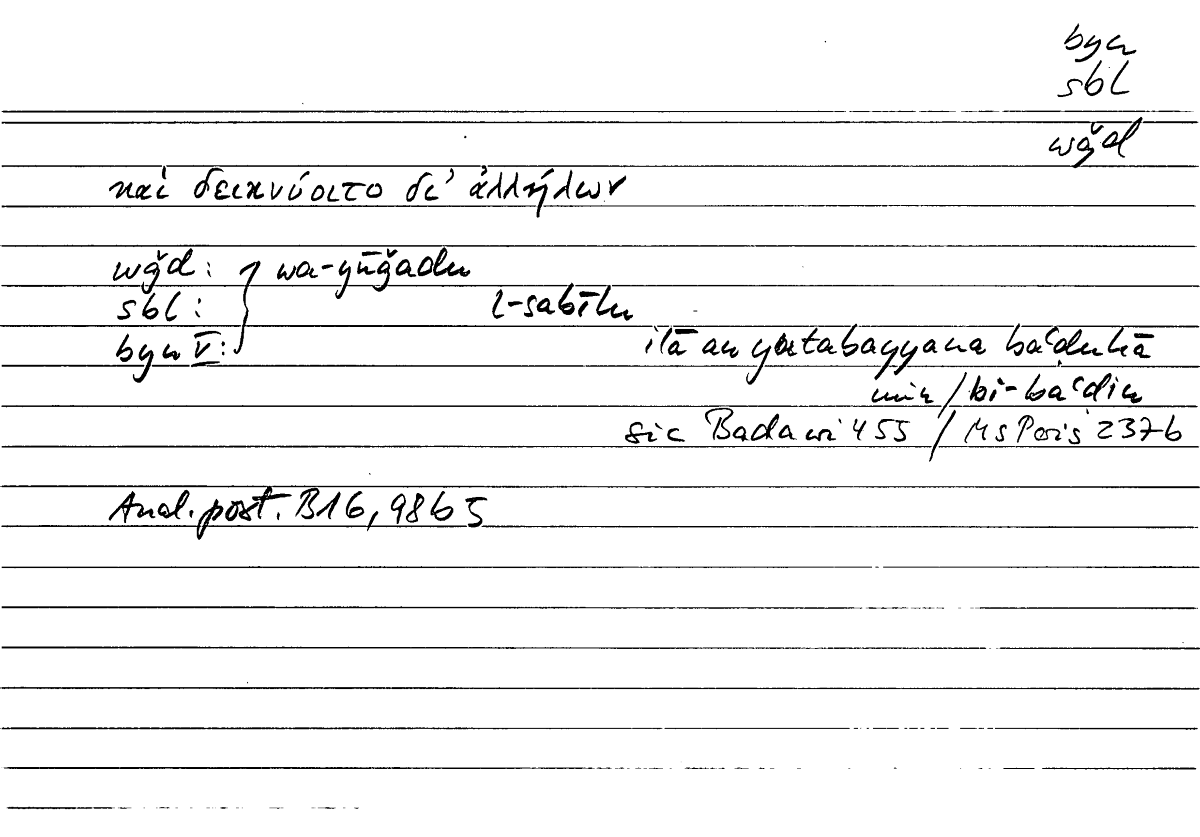 byn
sbl
wǧd
καὶ δεικνύοιτο δι’ ἀλλήλων
wǧd : } wa-yūǧadu
sbl : l-sabīlu
byn V : ilā an yatabayyana baʿḍuhā
min / bi-baʿḍin
sic Badawi 455 / Ms Paris 237b
Anal. post. B16, 98b5